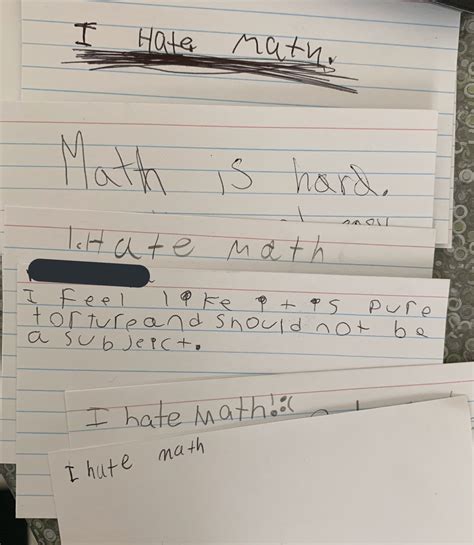 I Hate Math.
Math is hard.
1. Hate math
I feel like it is pure
torture and should not be
a subjeict.
I hate Math!:(
I hate math